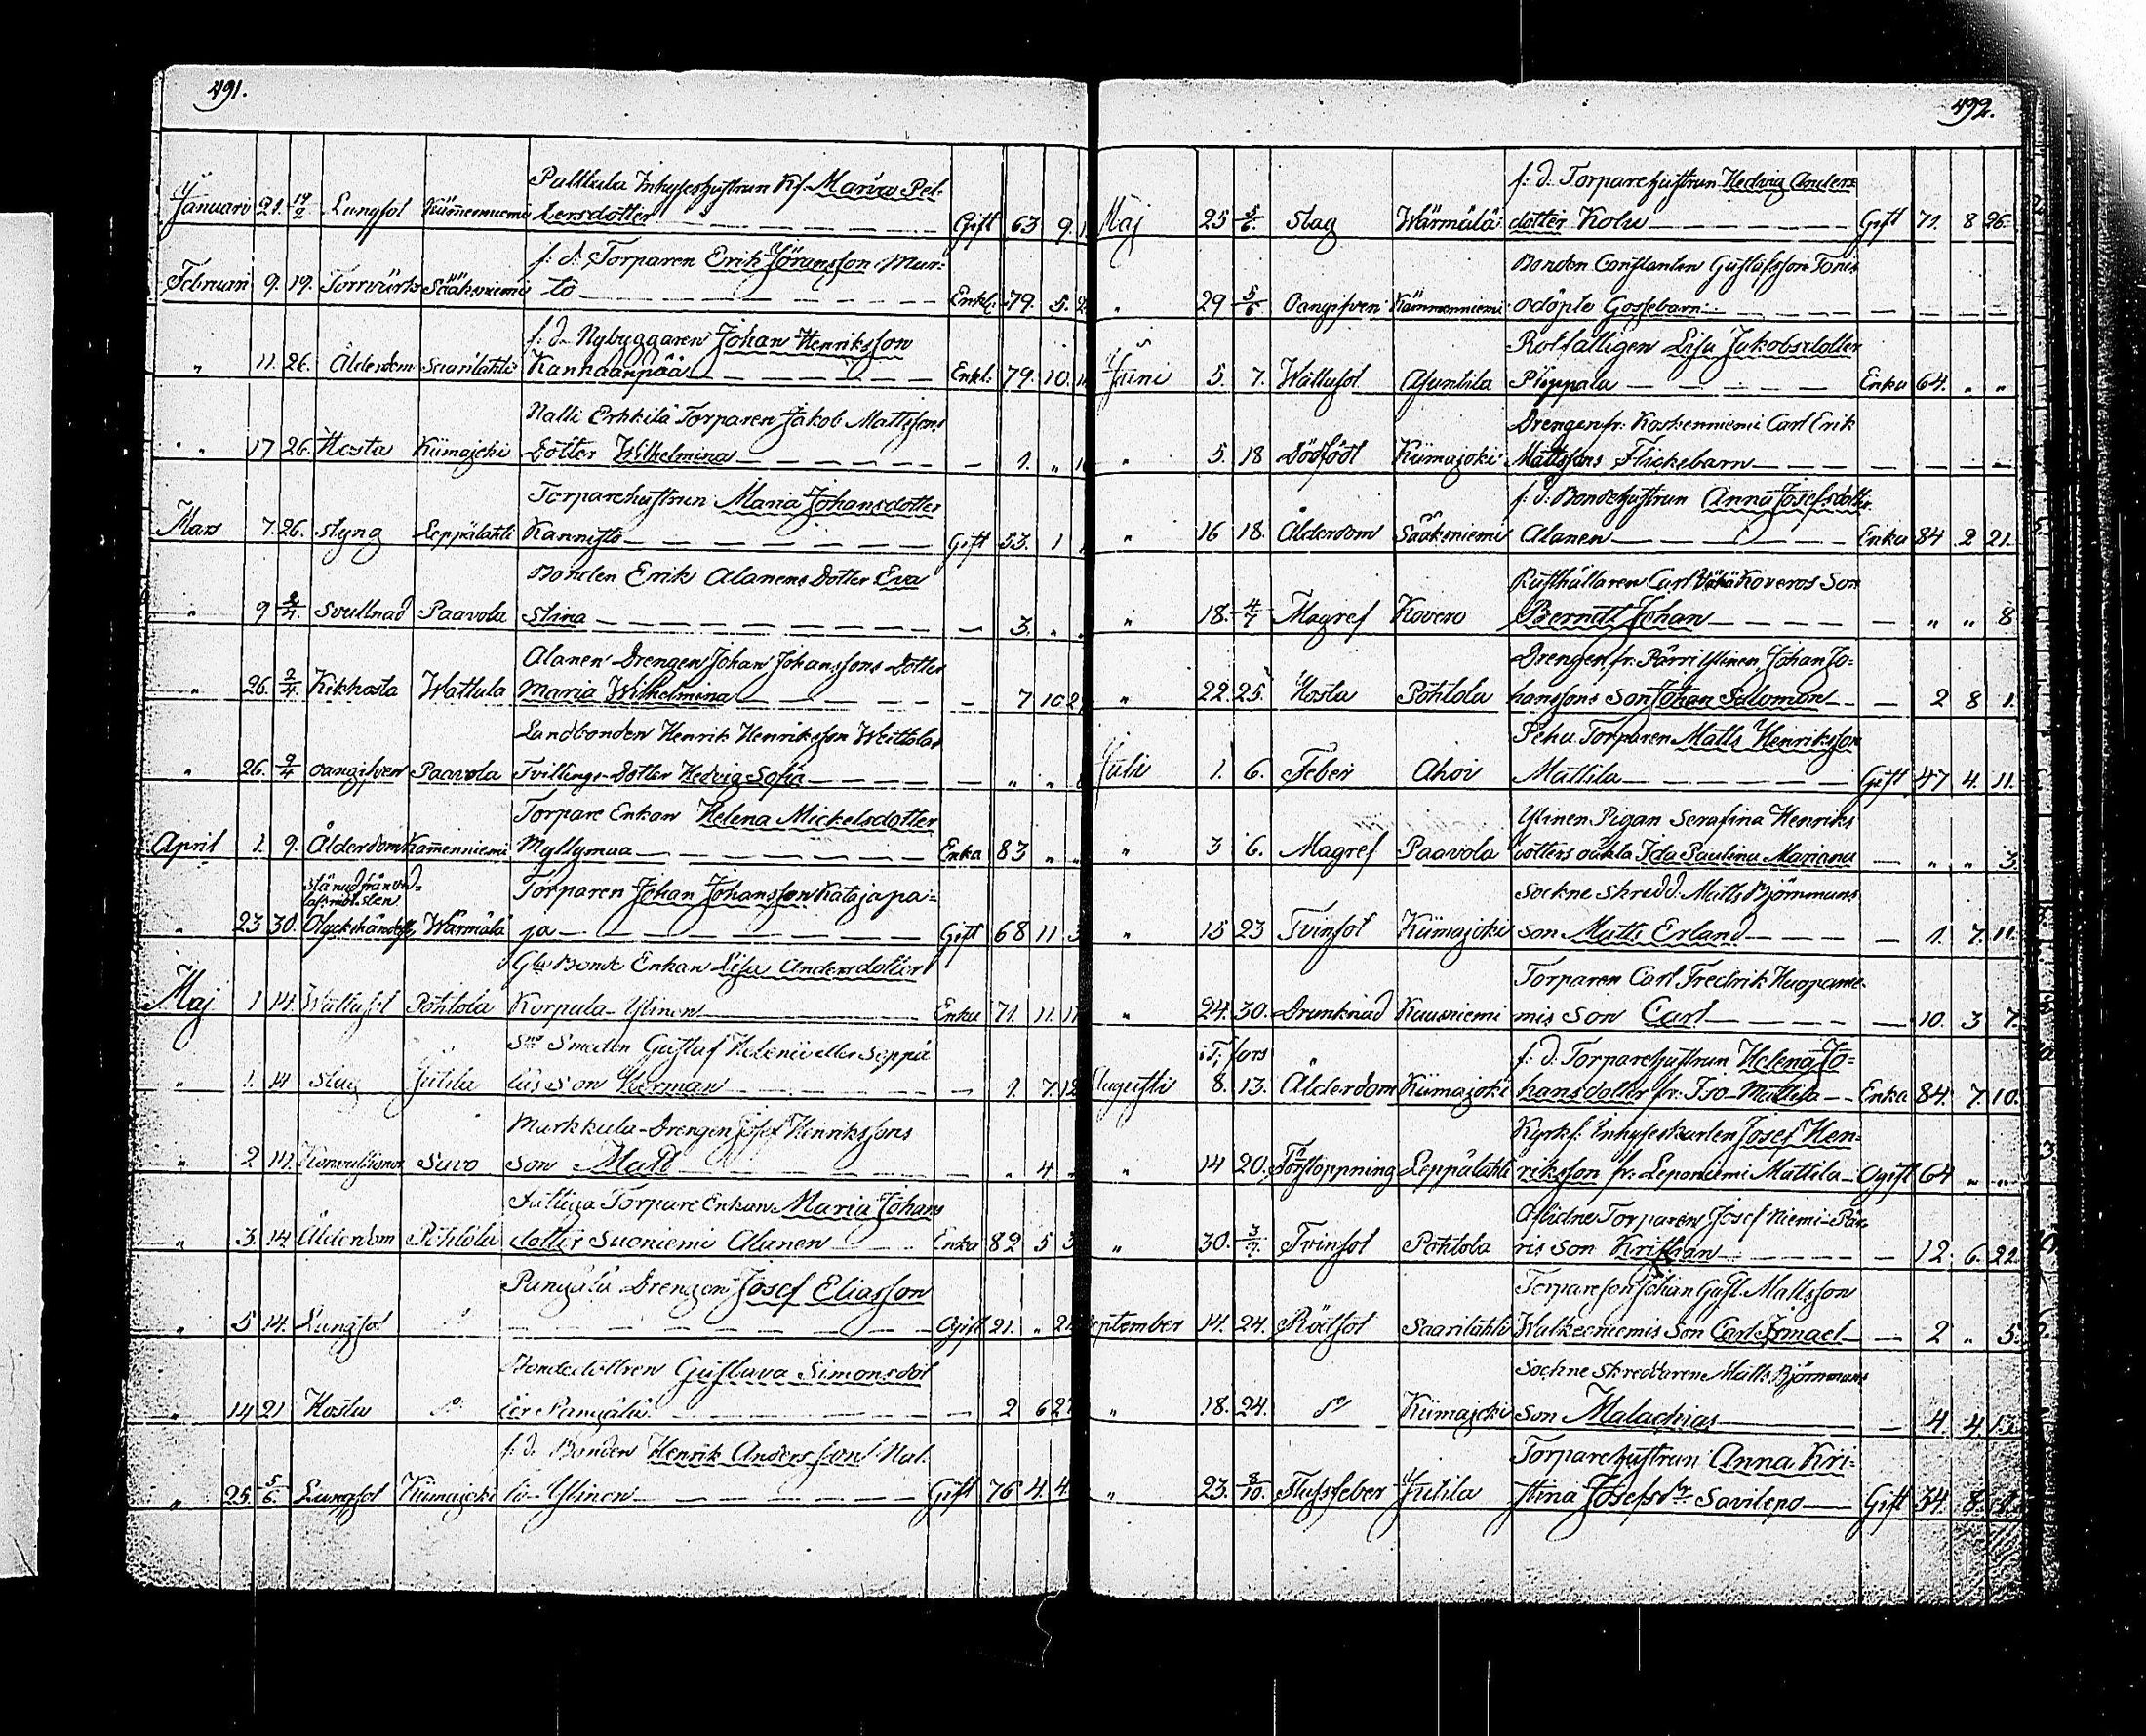 491.
Palttula Inhyseshustrun Kf. Maria Pet-
Januari 21. 14/2 Lungsot Kämmenniemi tersdotter Gift 63 9.
f. d. Torparen Erik Jöransson Mur-
Februari 9. 19. Torrvärk Sääksniemi to Enkl. 79. 5. 2
f. d. Nybyggaren Johan Henriksson
" 11. 26. Ålderdom Saarilahti Kanhaanpää Enkl. 79. 10.
Nalli Erkkilä Torparen Jakob Mattssons
" 17 26. Hosta Kiimajoki Dotter Wilhelmina — 1. "
Torparehustrun Maria Johansdotter
Mars 7. 26. styng Leppälahti Kannisto Gift 53. 1
Bonden Erik Alanens Dotter Eva
" 9 2/4. Svullnad Paavola Stina — 3. " "
Alanen Drengen Johan Johanssons Dotter
" 26. 2/4. Kikhosta Wattula Maria Wilhelmina — 7 10 2
Landbonden Henrik Henriksson Weittolas
" 26. 9/4 oangifven Paavola Tvillings-Dotter Hedvig Sofia — " "
Torpare Enkan Helena Mickelsdotter
April 1. 9. Ålderdom Kämenniemi Myllymaa Enka 83 " "
Torparen Johan Johansson Katajapa-
" 23 30. Olyckshändelse Wärmälä ja Gift 68 11 3
Gla Bond Enkan Lisa Andersdotter
Maj 1. 14. Wattusot Pohtola Korpula-Ylinen Enka 71. 11. 11
Smeden Gustaf Helenii eller Seppä
" 1. 14 slag Jutila läs son Herman — 1. 7. 12
Markkula-Drengen Josef Henrikssons
" 2 14. Konvulsioner Savo son Matts — " 4 "
Torpare Enkan Maria Johans
" 3. 14. Ålderdom Pohtola dotter Suoniemi Alanen Enka 82 5 3
Panzälä Drengen Josef Eliasson
" 5 14. Lungsot d:o Ogift 21. " 21.
Bondedottren Gustava Simonsdot
" 14 21 Hosta d:o ter Panzälä — 2 6 27
f. d. Bonden Henrik Anderssons Nal-
" 25. 5/6. Lungsot Kiimajoki li-Ylinen Gift 76 4. 4.
492.
f. d. Torparehustrun Hedvig Anders
Maj 25 5/6. slag Wärmälä dotter Kolu Gift 71. 8 26.
Bonden Constantin Gustafsson Tonis
" 29 5/6. Oangifven Kämmenniemi odöpte Gossebarn
Rotfattigen Lisa Jakobsdotter
Juni 5. 7. Wattusot Asuntila Piippala Enka 64. " "
Drengen fr. Koskenniemi Carl Erik
" 5. 18 Dödfödt Kiimajoki Mattssons Flickebarn
f. d. Bondehustrun Anna Josefsdotter
" 16 18. Ålderdom Sääksniemi Alanen Enka 84 2 21.
Rusthållaren Carl Wähä Koveros Son
" 18. 4/7 Magref Kovero Berndt Johan — " " 8
Drengen fr. Pärri Ylinen, Johan Jo-
" 22. 25. Hosta Pohtola hanssons Son Johan Salomon — 2 8 1.
Pehu Torparen Matts Henriksson
Juli 1. 6. Feber Ahoi Mattila Gift 47 4. 11.
Ylinen Pigan Serafina Henriks
" 3 6. Magref Paavola dotters oäkta Ida Paulina Mariana — " " 3.
Sockne skredd. Matts Björnmans
" 15 23 Tvinsot Kiimajoki son Matts Erland — 1. 7. 11.
Torparen Carl Fredrik Haapanie-
" 24. 30. Drunknad Kuusniemi mis son Carl — 10. 3 7.
f. d. Torparehustrun Helena Jo-
Augusti 8. 13. Ålderdom Kiimajoki hansdotter fr. Iso-Mattila Enka 84. 7. 10.
Kyrkf. Inhyseskarlen Josef Hen-
" 14 20. Förstoppning Leppälahti riksson fr. Leponiemi Mattila Ogift 64 " "
Aflidne Torparen Josef Niemi-Pär
" 30. 3/9. Tvinsot Pohtola ris son Kristian — 12. 6. 22.
Torpareson Johan Gust. Mattsson
September 14. 24. Rödsot Saarilahti Walkeeniemis son Carl Ismael — 2 " 5.
Sockne skreddaren Matts Björnmans
" 18. 24. d:o Kiimajoki son Malachias — 4. 4. 13.
Torparehustrun Anna Kri-
" 23. 8/10. Flussfeber Jutila stina Josefsdr. Savilepo Gift 34. 8.